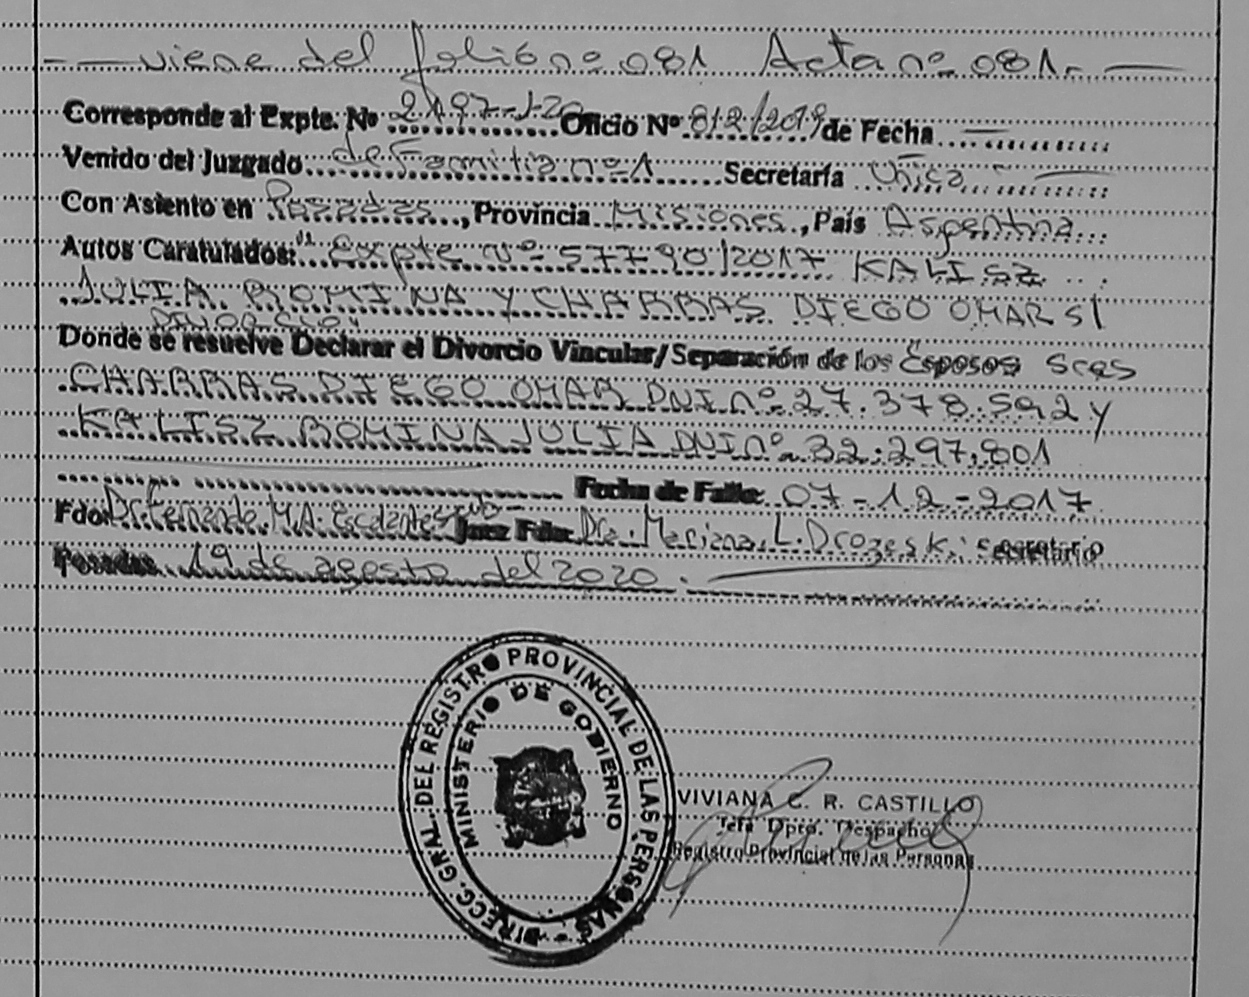 - - — viene del folio nº 081 Acta nº 081.- —
Corresponde al Expte. Nº 2197-J-20 Oficio Nº 812/2019 de Fecha —
Venido del Juzgado de Familia nº 1 Secretaría Única —
Con Asiento en Posadas, Provincia Misiones, País Argentina
Autos Caratulados: "Expte nº 57790/2017 KALISZ
JULIA ROMINA Y CHARRAS DIEGO OMAR S/
Divorcio"
Donde se resuelve Declarar el Divorcio Vincular/Separación de los Esposos Sres
CHARRAS DIEGO OMAR DNI nº 27.378.592 y
KALISZ ROMINA JULIA DNI nº 32.297.801
Fecha de Fallo: 07-12-2017
Fdo: Dr. Fernando M.A. Escalante Juez Fdo: Dra. Mariana L. Drozesk. secretario
Posadas, 19 de agosto del 2020. —
DIRECC. GRAL. DEL REGISTRO PROVINCIAL DE LAS PERSONAS -
MINISTERIO DE GOBIERNO
VIVIANA C. R. CASTILLO
Jefa Dpto. Despacho
Registro Provincial de las Personas